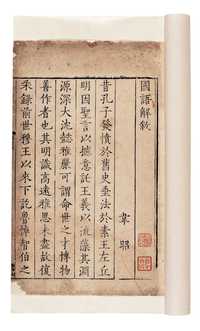 國語解敘
韋昭
昔孔子發憤於舊史垂法於素王左丘
明因聖言以攄意託王義以流藻其淵
源深大沈懿雅麗可謂命世之才博物
善作者也其明識高遠雅思未盡故復
采錄前世穆王以來下訖魯悼智伯之